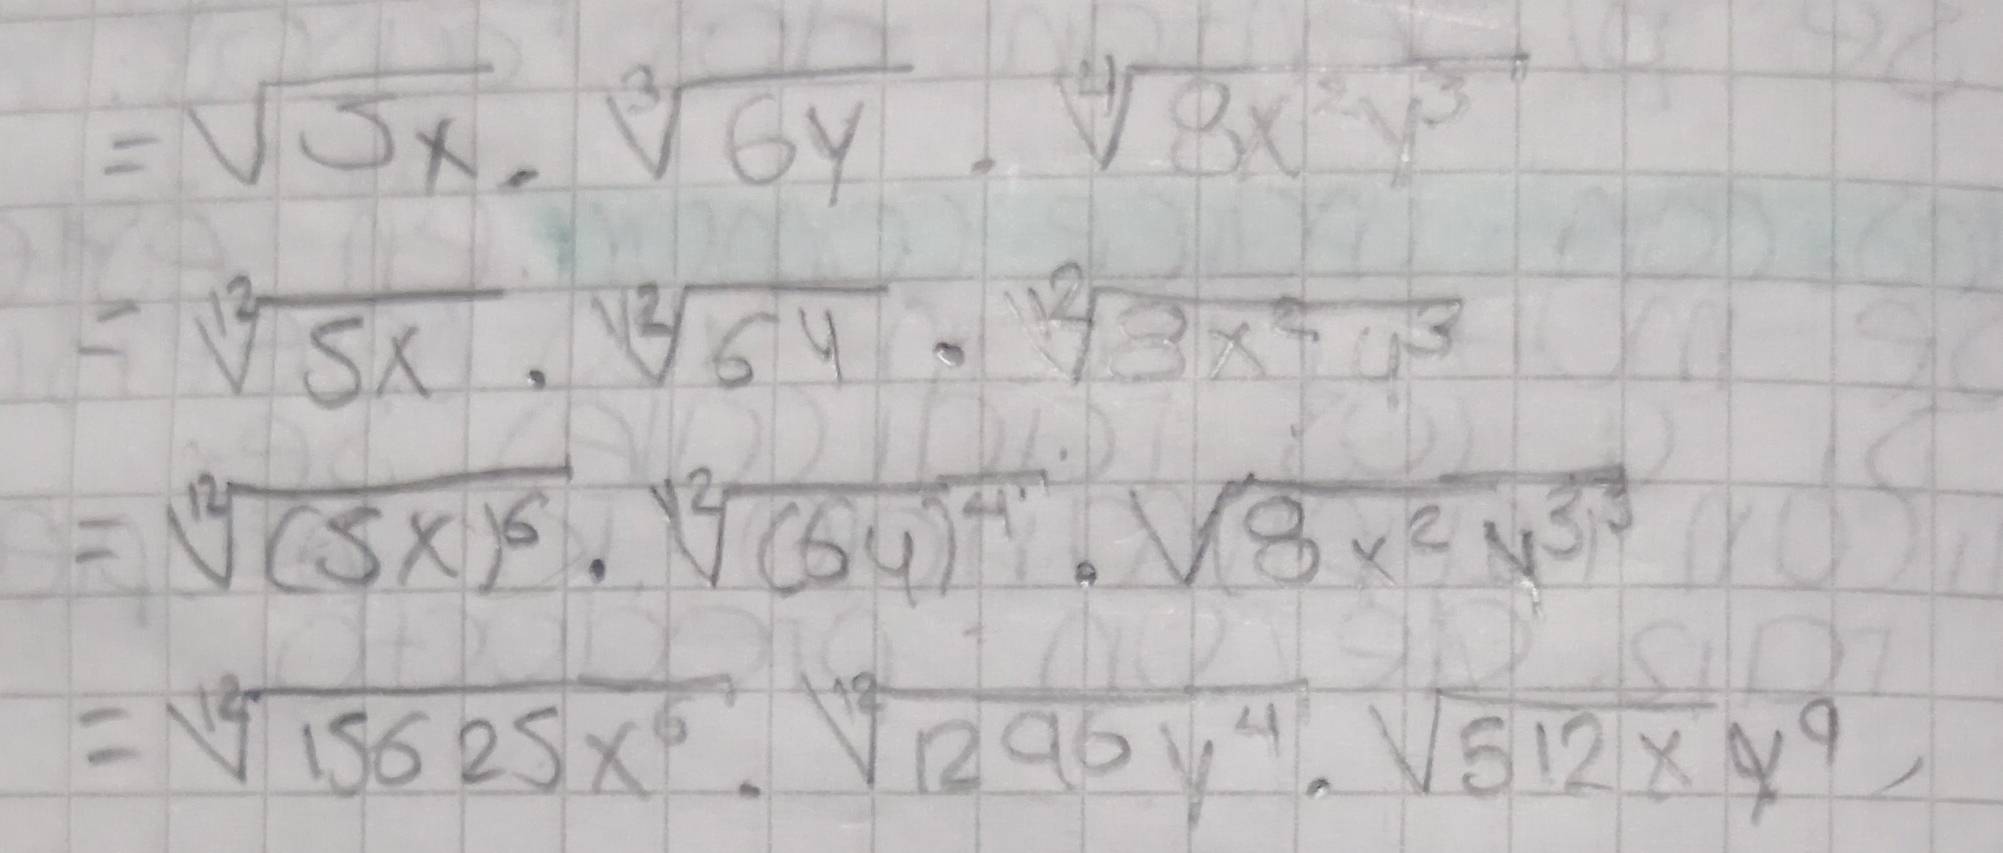 = √5x . ∛6y . ∜8x²y³
= ¹²√5x . ¹²√6y . ¹²√8x²y³
= ¹²√(5x)⁶ . ¹²√(6y)⁴ . √8x²y³˒³
= ¹²√15625x⁶ . ¹²√1296y⁴ . √512x y⁹,